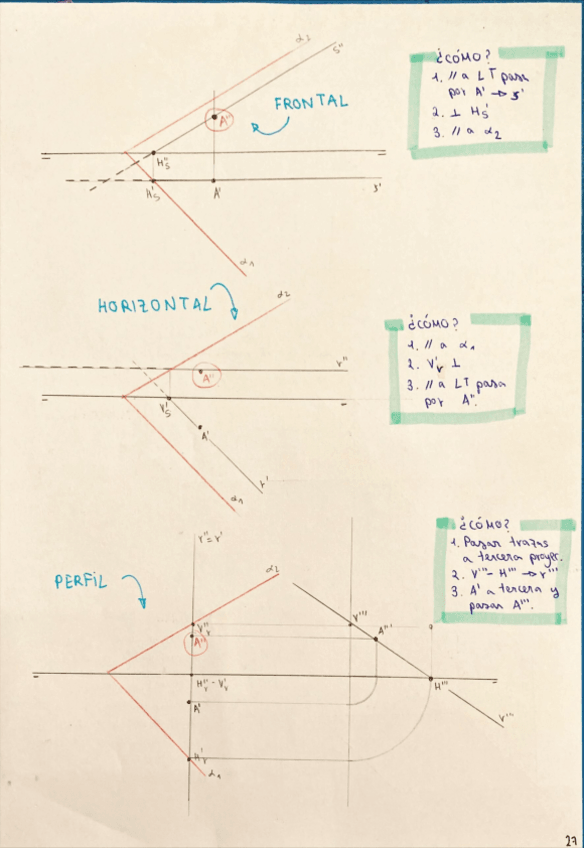 α₂
s"
¿CÓMO?
1. // a LT pasa
por A' → s'
2. ⊥ H's
3. // a α₂
FRONTAL
A"
H"s
H's
A'
s'
α₁
HORIZONTAL
α₂
¿CÓMO?
1. // a α₁
2. V'r ⊥
3. // a LT pasa
por A".
r"
A"
V's
A'
r'
α₁
¿CÓMO?
1. Pasar trazas
a tercera proyec.
2. V''' - H''' → r'''
3. A' a tercera y
pasar A'''.
r" = r'
PERFIL
α₂
V"r
V'''
A"
A'''
H"r - V'r
H'''
A'
r'''
H'r
α₁
27